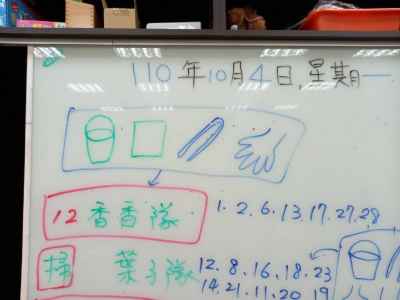 110年10月4日,星期一
12 香香隊 1.2.6.13.17.27.28
掃 葉子隊 12.8.16.18.23
14.21.11.20.19